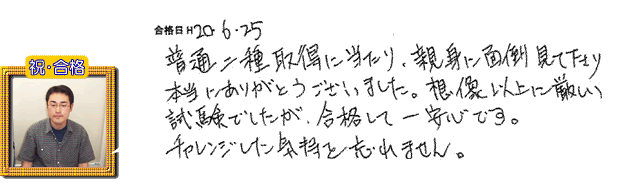 祝・合格
合格日 H20・6・25
普通二種取得に当たり、親身に面倒見て下さり
本当にありがとうございました。想像以上に厳しい
試験でしたが、合格して一安心です。
チャレンジした気持を忘れません。